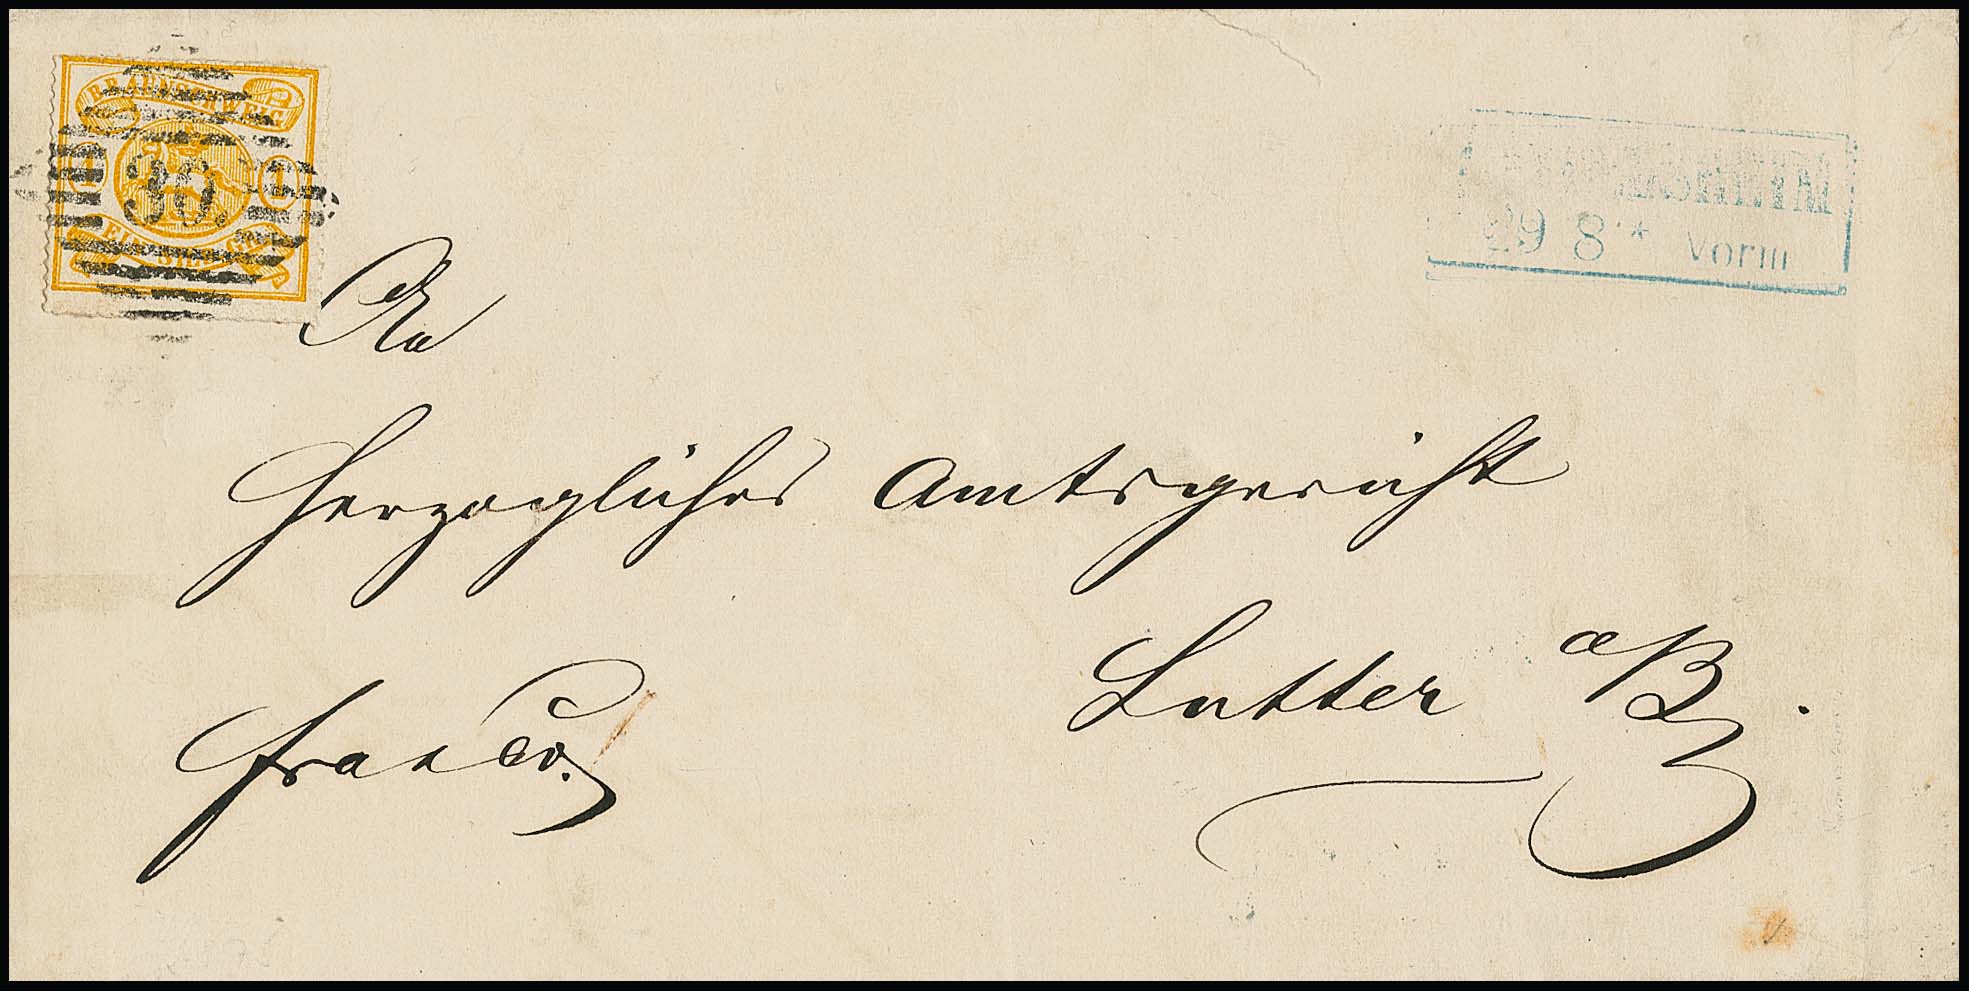 BRAUNSCHWEIG
1 1
30.
EIN SILB. GR.
29 8 * Vorm
An
Herzogliches Amtsgericht
Lutter a/B.
franco.